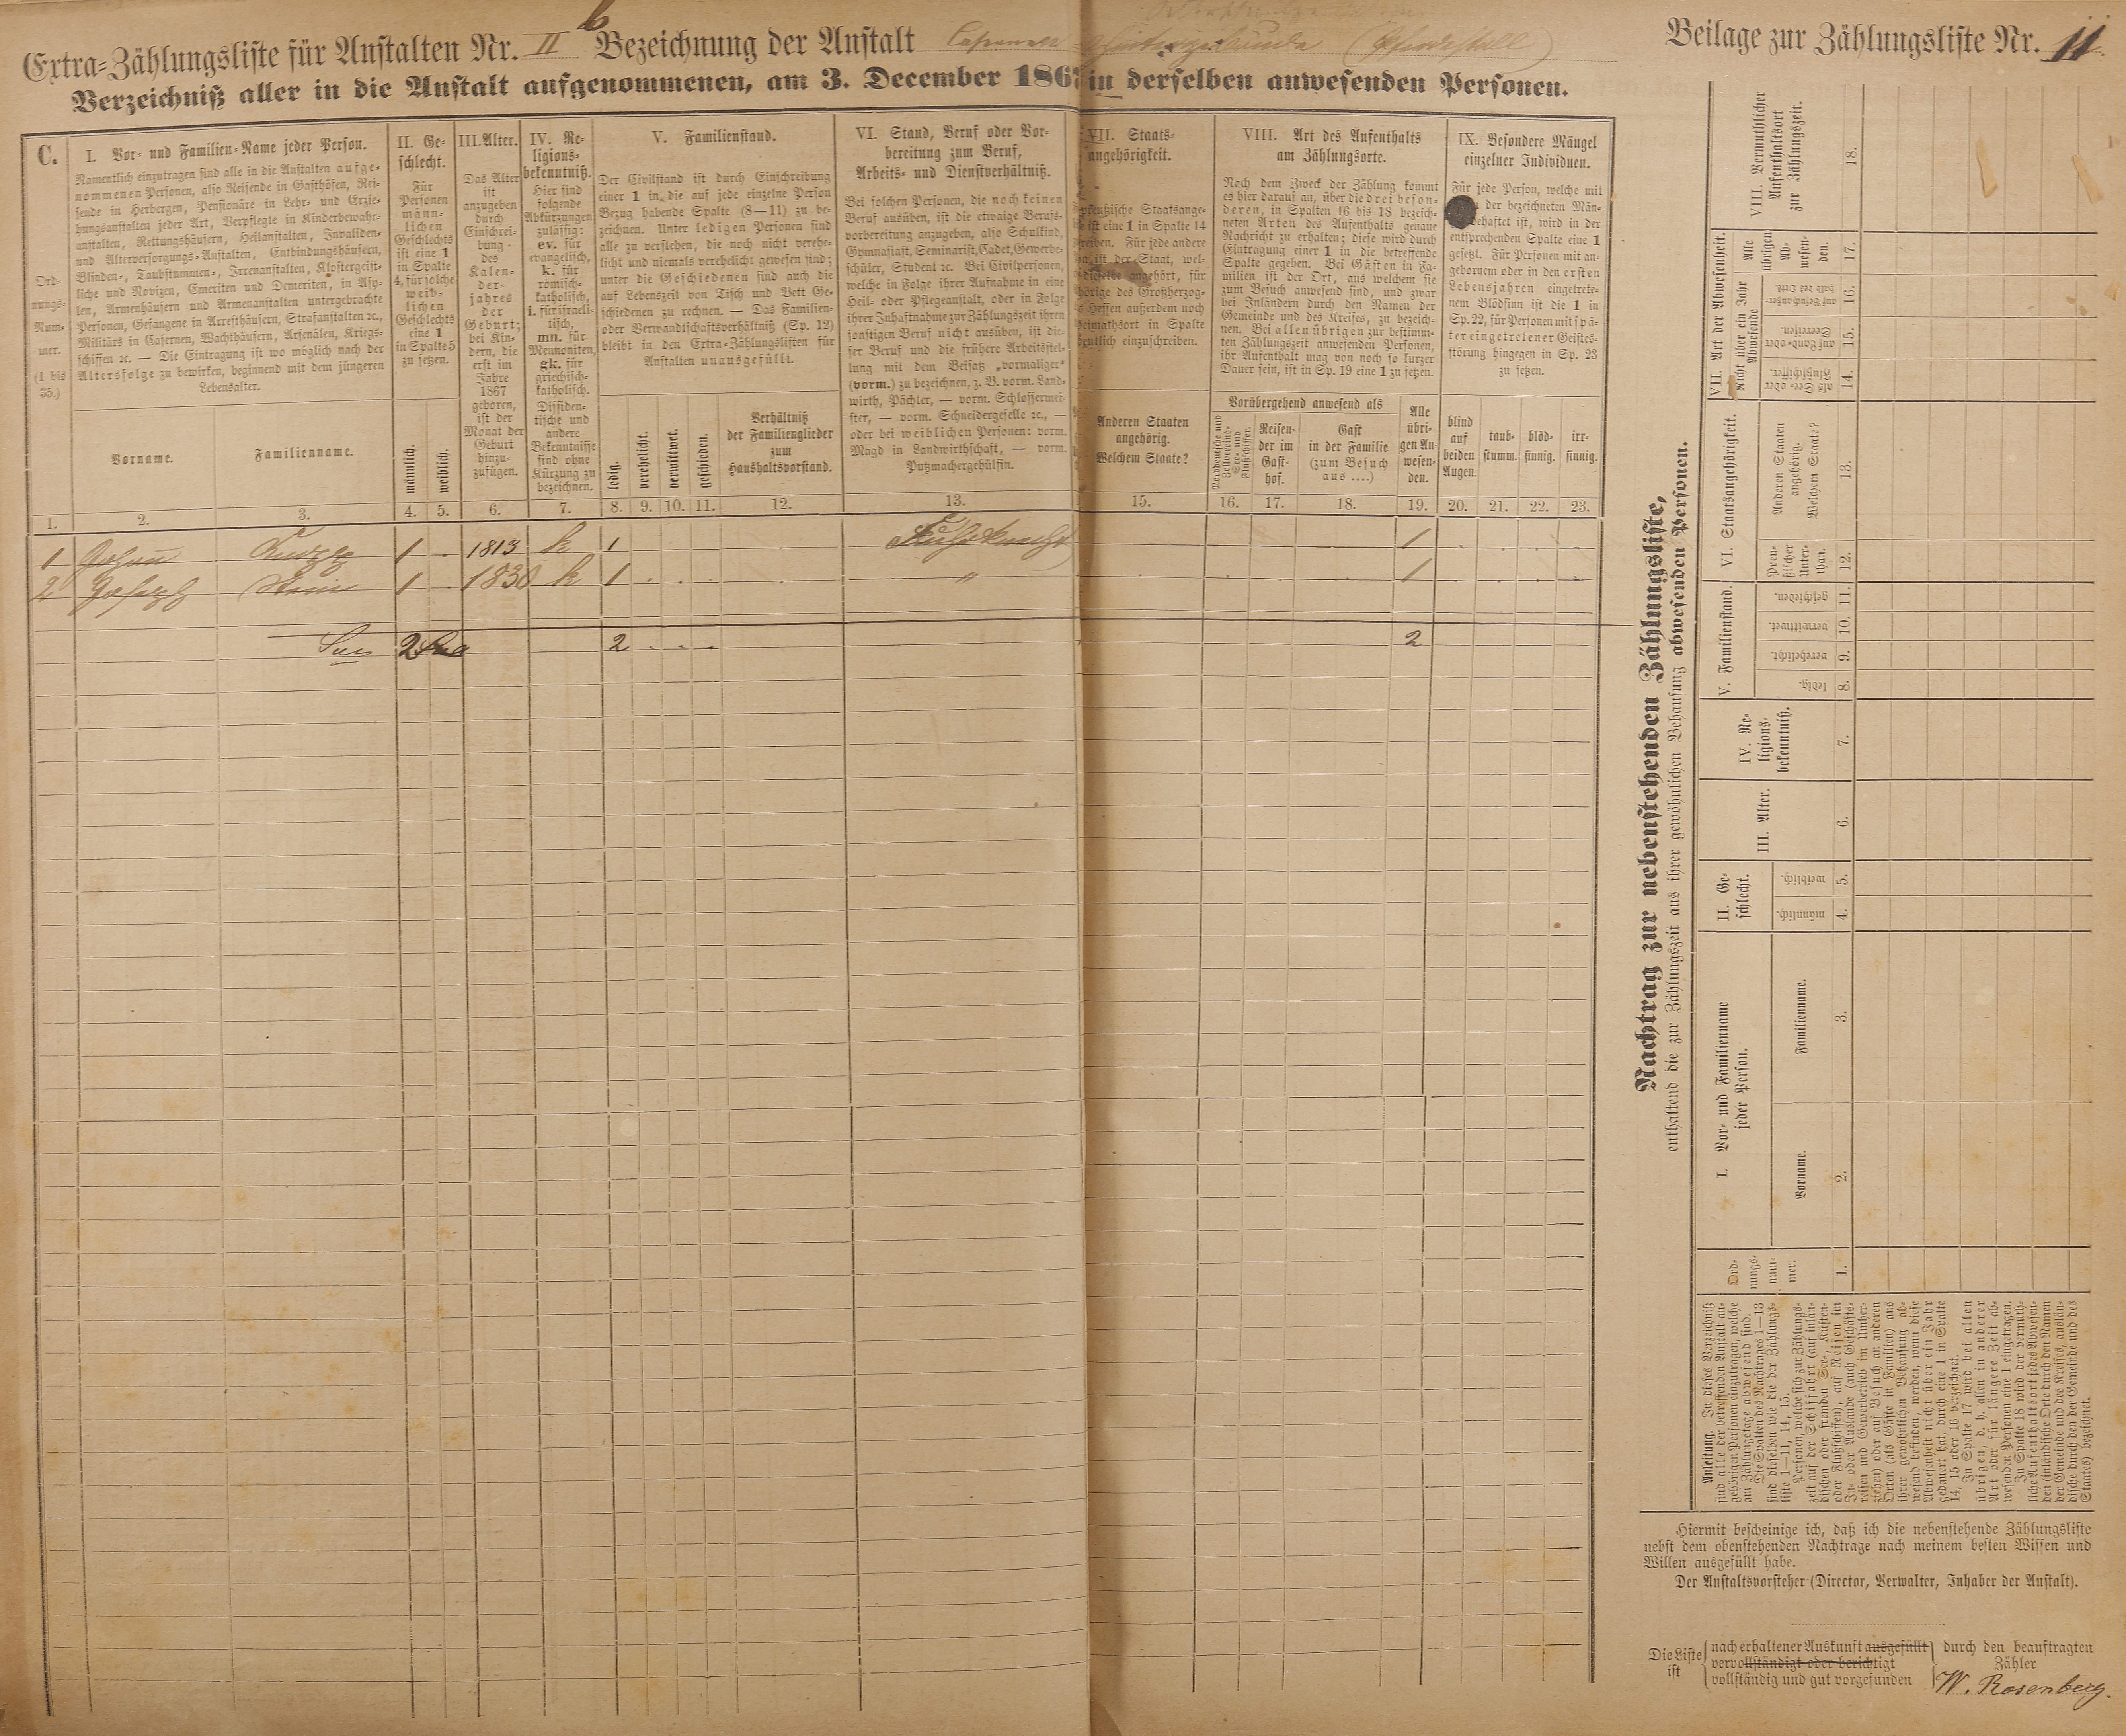 Extra-Zählungsliste für Anstalten Nr. II b Bezeichnung der Anstalt (Pferdestall)
Beilage zur Zählungsliste Nr. 11.
Verzeichniß aller in die Anstalt aufgenommenen, am 3. December 1867 in derselben anwesenden Personen.
C.
Ord-
nungs-
Num-
mer.
(1 bis
35.)
1.
I. Vor- und Familien-Name jeder Person.
Namentlich einzutragen sind alle in die Anstalten aufge-
nommenen Personen, also Reisende in Gasthöfen, Rei-
sende in Herbergen, Pensionäre in Lehr- und Erzie-
hungsanstalten jeder Art, Verpflegte in Kinderbewahr-
anstalten, Rettungshäusern, Heilanstalten, Invaliden-
und Altersversorgungs-Anstalten, Entbindungshäusern,
Blinden-, Taubstummen-, Irrenanstalten, Klostergeist-
liche und Novizen, Emeriten und Demeriten, in Asy-
len, Armenhäusern und Armenanstalten untergebrachte
Personen, Gefangene in Arresthäusern, Strafanstalten ꝛc.,
Militärs in Casernen, Wachthäusern, Arsenälen, Kriegs-
schiffen ꝛc. — Die Eintragung ist wo möglich nach der
Altersfolge zu bewirken, beginnend mit dem jüngeren
Lebensalter.
Vorname.
2.
Familienname.
3.
II. Ge-
schlecht.
Für
Personen
männ-
lichen
Geschlechts
ist eine 1
in Spalte
4, für solche
weib-
lichen
Geschlechts
eine 1
in Spalte 5
zu setzen.
männlich.
4.
weiblich.
5.
III. Alter.
Das Alter
ist
anzugeben
durch
Einschrei-
bung
des
Kalen-
der-
jahres
der
Geburt;
bei Kin-
dern, die
erst im
Jahre
1867
geboren,
ist der
Monat der
Geburt
hinzu-
zufügen.
6.
IV. Re-
ligions-
bekenntniß.
Hier sind
folgende
Abkürzungen
zulässig:
ev. für
evangelisch,
k. für
römisch-
katholisch,
i. für israeli-
tisch,
mn. für
Mennoniten,
gk. für
griechisch-
katholisch.
Dissiden-
tische und
andere
Bekenntnisse
sind ohne
Kürzung zu
bezeichnen.
7.
V. Familienstand.
Der Civilstand ist durch Einschreibung
einer 1 in die auf jede einzelne Person
Bezug habende Spalte (8—11) zu be-
zeichnen. Unter ledigen Personen sind
alle zu verstehen, die noch nicht verehe-
licht und niemals verehelicht gewesen sind;
unter die Geschiedenen sind auch die
auf Lebenszeit von Tisch und Bett Ge-
schiedenen zu rechnen. — Das Familien-
oder Verwandtschaftsverhältniß (Sp. 12)
bleibt in den Extra-Zählungslisten für
Anstalten unausgefüllt.
ledig.
8.
verehelicht.
9.
verwittwet.
10.
geschieden.
11.
Verhältniß
der Familienglieder
zum
Haushaltsvorstand.
12.
VI. Stand, Beruf oder Vor-
bereitung zum Beruf,
Arbeits- und Dienstverhältniß.
Bei solchen Personen, die noch keinen
Beruf ausüben, ist die etwaige Berufs-
vorbereitung anzugeben, also Schulkind,
Gymnasiast, Seminarist, Cadet, Gewerbe-
schüler, Student ꝛc. Bei Civilpersonen,
welche in Folge ihrer Aufnahme in eine
Heil- oder Pflegeanstalt, oder in Folge
ihrer Inhaftnahme zur Zählungszeit ihren
sonstigen Beruf nicht ausüben, ist die-
ser Beruf und die frühere Arbeitsstel-
lung mit dem Beisatz „vormaliger“
(vorm.) zu bezeichnen, z. B. vorm. Land-
wirth, Pächter, — vorm. Schlossermei-
ster, — vorm. Schneidergeselle ꝛc., —
oder bei weiblichen Personen: vorm.
Magd in Landwirthschaft, — vorm.
Putzmachergehülfin.
13.
VII. Staats-
angehörigkeit.
Anderen Staaten
angehörig.
Welchem Staate?
15.
VIII. Art des Aufenthalts
am Zählungsorte.
Nach dem Zweck der Zählung kommt
es hier darauf an, über die drei beson-
deren, in Spalten 16 bis 18 bezeich-
neten Arten des Aufenthalts genaue
Nachricht zu erhalten; diese wird durch
Eintragung einer 1 in die betreffende
Spalte gegeben. Bei Gästen in Fa-
milien ist der Ort, aus welchem sie
zum Besuch anwesend sind, und zwar
bei Inländern durch den Namen der
Gemeinde und des Kreises, zu bezeich-
nen. Bei allen übrigen zur bestimm-
ten Zählungszeit anwesenden Personen,
ihr Aufenthalt mag von noch so kurzer
Dauer sein, ist in Sp. 19 eine 1 zu setzen.
Vorübergehend anwesend als
Norddeutsche und
Zollvereins-
See- und
Flußschiffer.
16.
Reisen-
der im
Gast-
hof.
17.
Gast
in der Familie
(zum Besuch
aus ....)
18.
Alle
übri-
gen An-
wesen-
den.
19.
IX. Besondere Mängel
einzelner Individuen.
Für jede Person, welche mit
der bezeichneten Män-
behaftet ist, wird in der
entsprechenden Spalte eine 1
gesetzt. Für Personen mit an-
gebornem oder in den ersten
Lebensjahren eingetrete-
nem Blödsinn ist die 1 in
Sp. 22, für Personen mit spä-
ter eingetretener Geistes-
störung hingegen in Sp. 23
zu setzen.
blind
auf
beiden
Augen.
20.
taub-
stumm.
21.
blöd-
sinnig.
22.
irr-
sinnig.
23.
1 Johann 1 1813 k 1 1
2 Joseph Stein 1 1830 k 1 " 1
2 2 2
Nachtrag zur nebenstehenden Zählungsliste,
enthaltend die zur Zählungszeit aus ihrer gewöhnlichen Behausung abwesenden Personen.
Ord-
nungs-
num-
mer.
1.
I. Vor- und Familienname
jeder Person.
Vorname.
2.
Familienname.
3.
II. Ge-
schlecht.
männlich.
4.
weiblich.
5.
III. Alter.
6.
IV. Re-
ligions-
bekenntniß.
7.
V. Familienstand.
ledig.
8.
verehelicht.
9.
verwittwet.
10.
geschieden.
11.
VI. Staatsangehörigkeit.
Preu-
ßischer
Unter-
than.
12.
Anderen Staaten
angehörig.
Welchem Staate?
13.
VII. Art der Abwesenheit.
Nicht über ein Jahr
Abwesende
als See- oder
Flußschiffer.
14.
auf Land- oder
Seereisen.
15.
16.
Alle
übrigen
Ab-
wesen-
den.
17.
VIII. Vermuthlicher
Aufenthaltsort
zur Zählungszeit.
18.
Anleitung. In dieses Verzeichniß
sind alle der betreffenden Anstalt an-
gehörigen Personen einzutragen, welche
am Zählungstage abwesend sind.
Die Spalten des Nachtrages 1—13
sind dieselben wie die der Zählungs-
liste 1—11, 14, 15.
Personen, welche sich zur Zählungs-
zeit auf der Schifffahrt (auf inlän-
dischen oder fremden See-, Küsten-
oder Flußschiffen), auf Reisen im
In- oder Auslande (auch Geschäfts-
reisen und Gewerbetrieb im Umher-
ziehen) oder auf Besuch an anderen
Orten (als Gäste in Familien) aus
ihrer gewöhnlichen Behausung ab-
wesend befinden, werden, wenn diese
Abwesenheit nicht über ein Jahr
gedauert hat, durch eine 1 in Spalte
14, 15 oder 16 verzeichnet.
In Spalte 17 wird bei allen
übrigen, d. h. allen in anderer
Art oder für längere Zeit ab-
wesenden Personen eine 1 eingetragen.
In Spalte 18 wird der vermuth-
liche Aufenthaltsort jedes Abwesen-
den (inländische Orte durch den Namen
der Gemeinde und des Kreises, auslän-
dische durch den der Gemeinde und des
Staates) bezeichnet.
Hiermit bescheinige ich, daß ich die nebenstehende Zählungsliste
nebst dem obenstehenden Nachtrage nach meinem besten Wissen und
Willen ausgefüllt habe.
Der Anstaltsvorsteher (Director, Verwalter, Inhaber der Anstalt).
Die Liste ist
nach erhaltener Auskunft ausgefüllt
vervollständigt oder berichtigt
vollständig und gut vorgefunden
durch den beauftragten
Zähler
W. Rosenberg.